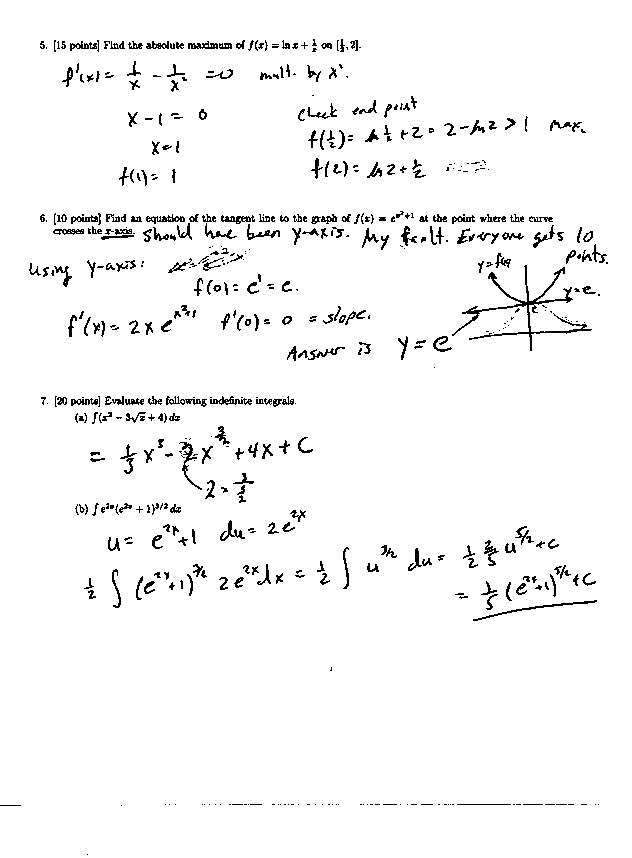 5. [15 points] Find the absolute maximum of f(x) = ln x + 1/x on [1/2, 2].
f'(x) = 1/x - 1/x² = 0 mult. by x².
x - 1 = 0
x = 1
f(1) = 1
Check end point
f(1/2) = ln 1/2 + 2 = 2 - ln 2 > 1 max.
f(2) = ln 2 + 1/2
6. [10 points] Find an equation of the tangent line to the graph of f(x) = e^(x²+1) at the point where the curve
crosses the x-axis. Should have been y-axis. My fault. Everyone gets 10 points.
Using y-axis:
f(0) = e¹ = e.
f'(x) = 2x e^(x²+1) f'(0) = 0 = slope.
Answer is y = e
y = f(x)
y = e.
7. [20 points] Evaluate the following indefinite integrals.
(a) ∫(x² - 3√x + 4) dx
= 1/3 x³ - 2x^(3/2) + 4x + C
(b) ∫e^(2x)(e^(2x) + 1)^(3/2) dx
u = e^(2x) + 1 du = 2e^(2x)
1/2 ∫ (e^(2x) + 1)^(3/2) 2e^(2x) dx = 1/2 ∫ u^(3/2) du = 1/2 2/5 u^(5/2) + C
= 1/5 (e^(2x) + 1)^(5/2) + C